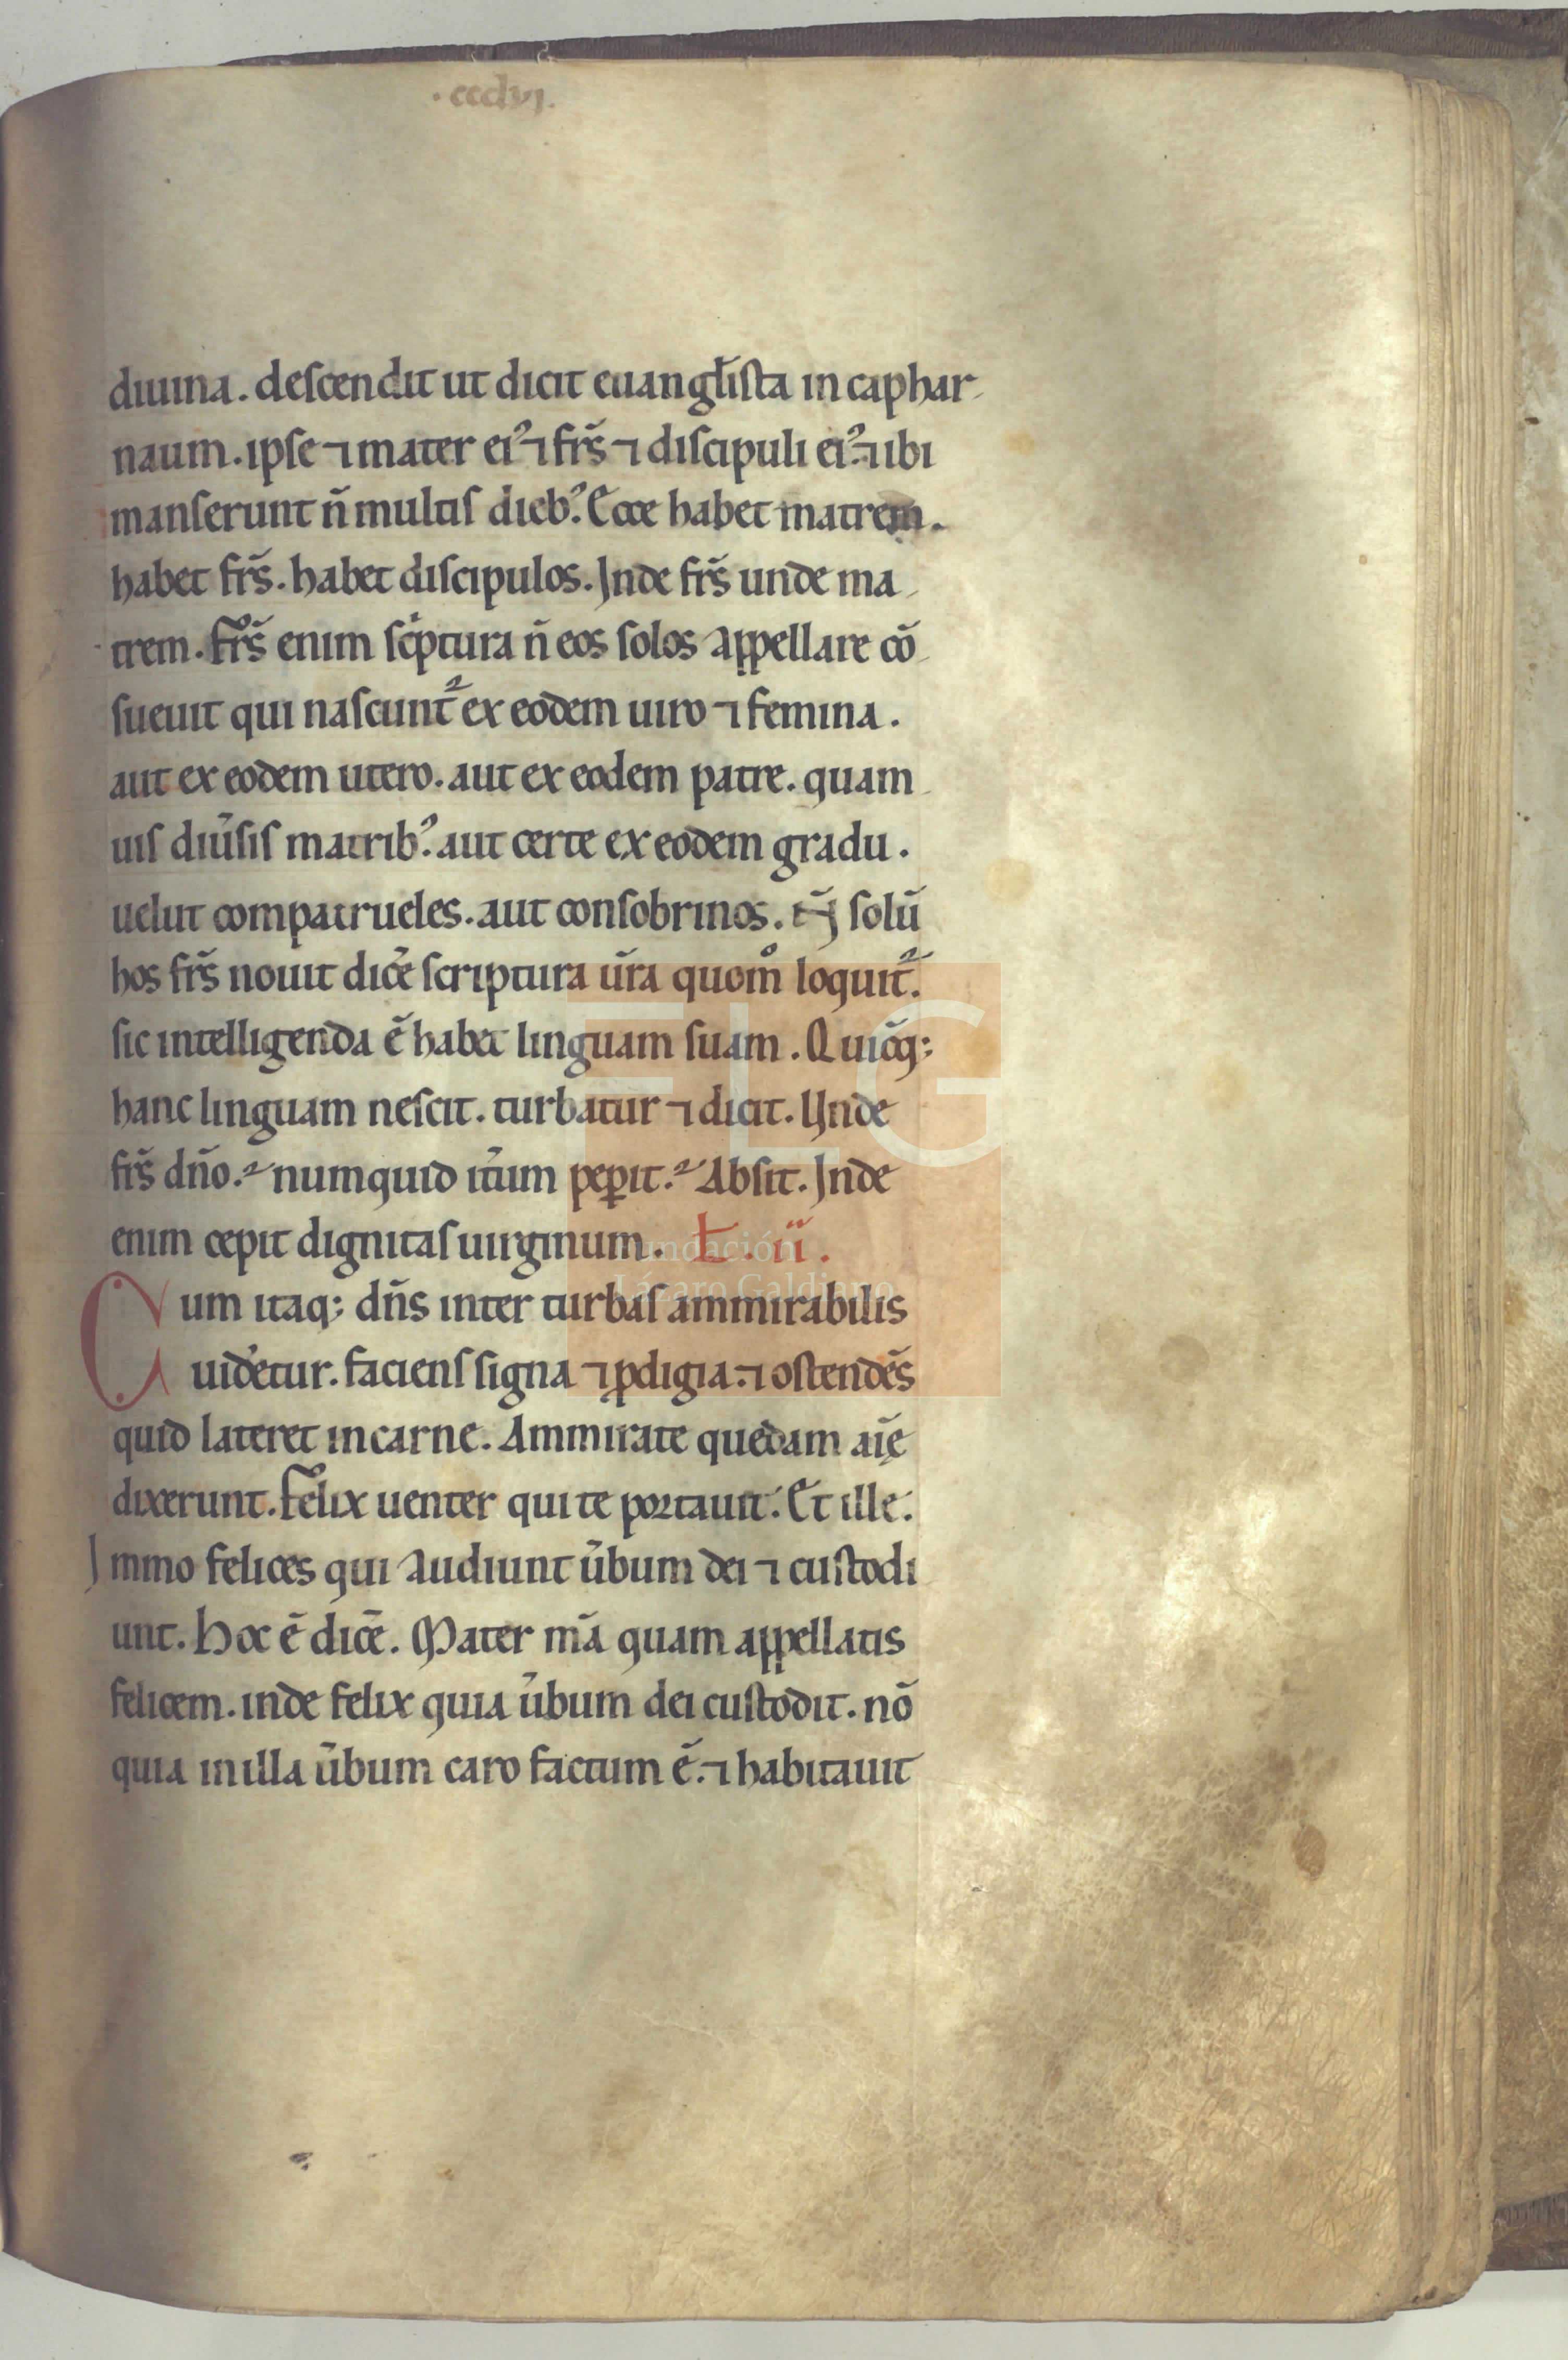 .ccclvi.
diuina. descendit ut dicit euangl̄ista in caphar-
naum. ipse ⁊ mater ei⁹ ⁊ fr̄s ⁊ discipuli ei⁹. ⁊ ibi
manserunt n̄ multis dieb⁹. Ecce habet matrem.
habet fr̄s. habet discipulos. Inde fr̄s unde ma-
trem. Fr̄s enim sc̍ptura n̄ eos solos appellare cō-
sueuit qui nascunt᷑ ex eodem uiro ⁊ femina.
aut ex eodem utero. aut ex eodem patre. quam-
uis diūsis matrib⁹. aut certe ex eodem gradu.
uelut compatrueles. aut consobrinos. solū
hos fr̄s nouit dic̄e scriptura ūra quom̊ loquit᷑.
sic intelligenda ē habet linguam suam. Quicūq;
hanc linguam nescit. turbatur ⁊ dicit. Unde
fr̄s dn̄o.? numquid it̄um pep̲it.? Absit. Inde
enim cepit dignitas uirginum. Ł. ii.
Cum itaq; dn̄s inter turbas ammirabilis
uidetur. faciens signa ⁊ ꝓdigia. ⁊ ostendēs
quid lateret in carne. Ammirate quedam aīę
dixerunt. Felix uenter qui te portauit. Et ille.
Immo felices qui audiunt ūbum dei ⁊ custodi
unt. Hoc ē dic̄e. Mater m̄a quam appellatis
felicem. inde felix quia ūbum dei custodit. nō
quia in illa ūbum caro factum ē. ⁊ habitauit
FLG
Fundación
Lázaro Galdiano